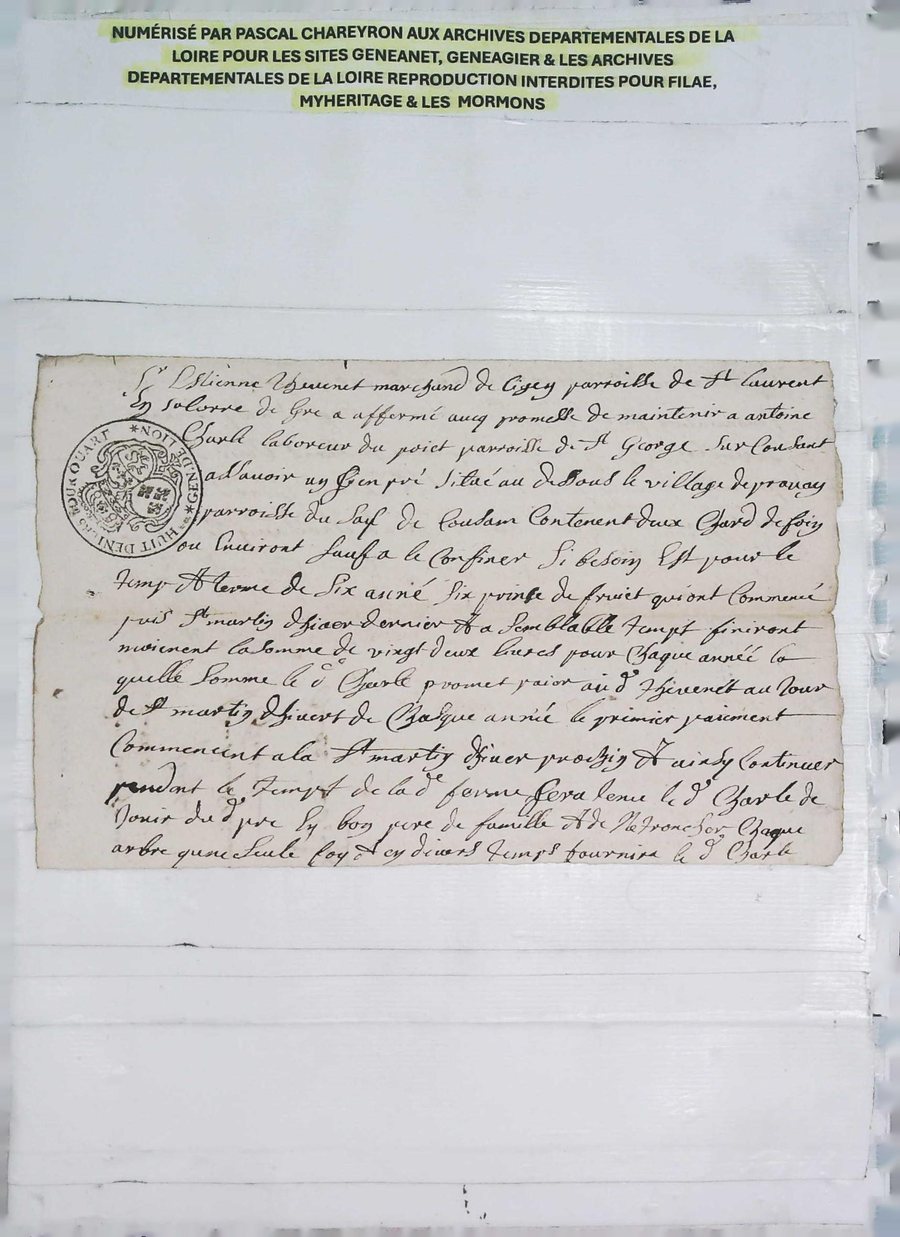 NUMÉRISÉ PAR PASCAL CHAREYRON AUX ARCHIVES DEPARTEMENTALES DE LA
LOIRE POUR LES SITES GENEANET, GENEAGIER & LES ARCHIVES
DEPARTEMENTALES DE LA LOIRE REPRODUCTION INTERDITES POUR FILAE,
MYHERITAGE & LES MORMONS
Sr Estienne thevenet marchand de parroisse de St laurent
En solorre de Gre a affermé aucq promesse de maintenir a antoine
Charle laboreur du poiet parroisse de St George sur Cousant
assavoir un sien pré situé au dessous le village de
parroisse du sail de Cousam Contenent deux Chard de foin
ou Environt sauf a le Confiner si besoin Est pour le
temp & terme de six anné six prinse de fruict qui ont Commencé
puis St martin dhiver dernier & a semblable tempt finiront
moienent la somme de vingt deux livres pour Chaque année la
quelle somme le dt Charle promet paier au dt thevenet au Jour
de St martin dhivert de Chasque année le premier paiement
Commencent a la St martin dhiver prochin & ainsy Continuer
pendant le tempt de la de ferme sera tenu le dt Charle de
Jouir du dt pre En bon pere de famille & de Ne troncher Chaque
arbre qune seule foy & en divers temps fournira le dt Charle
*GENED.LION*
HUIT DENIERS POUR QUART